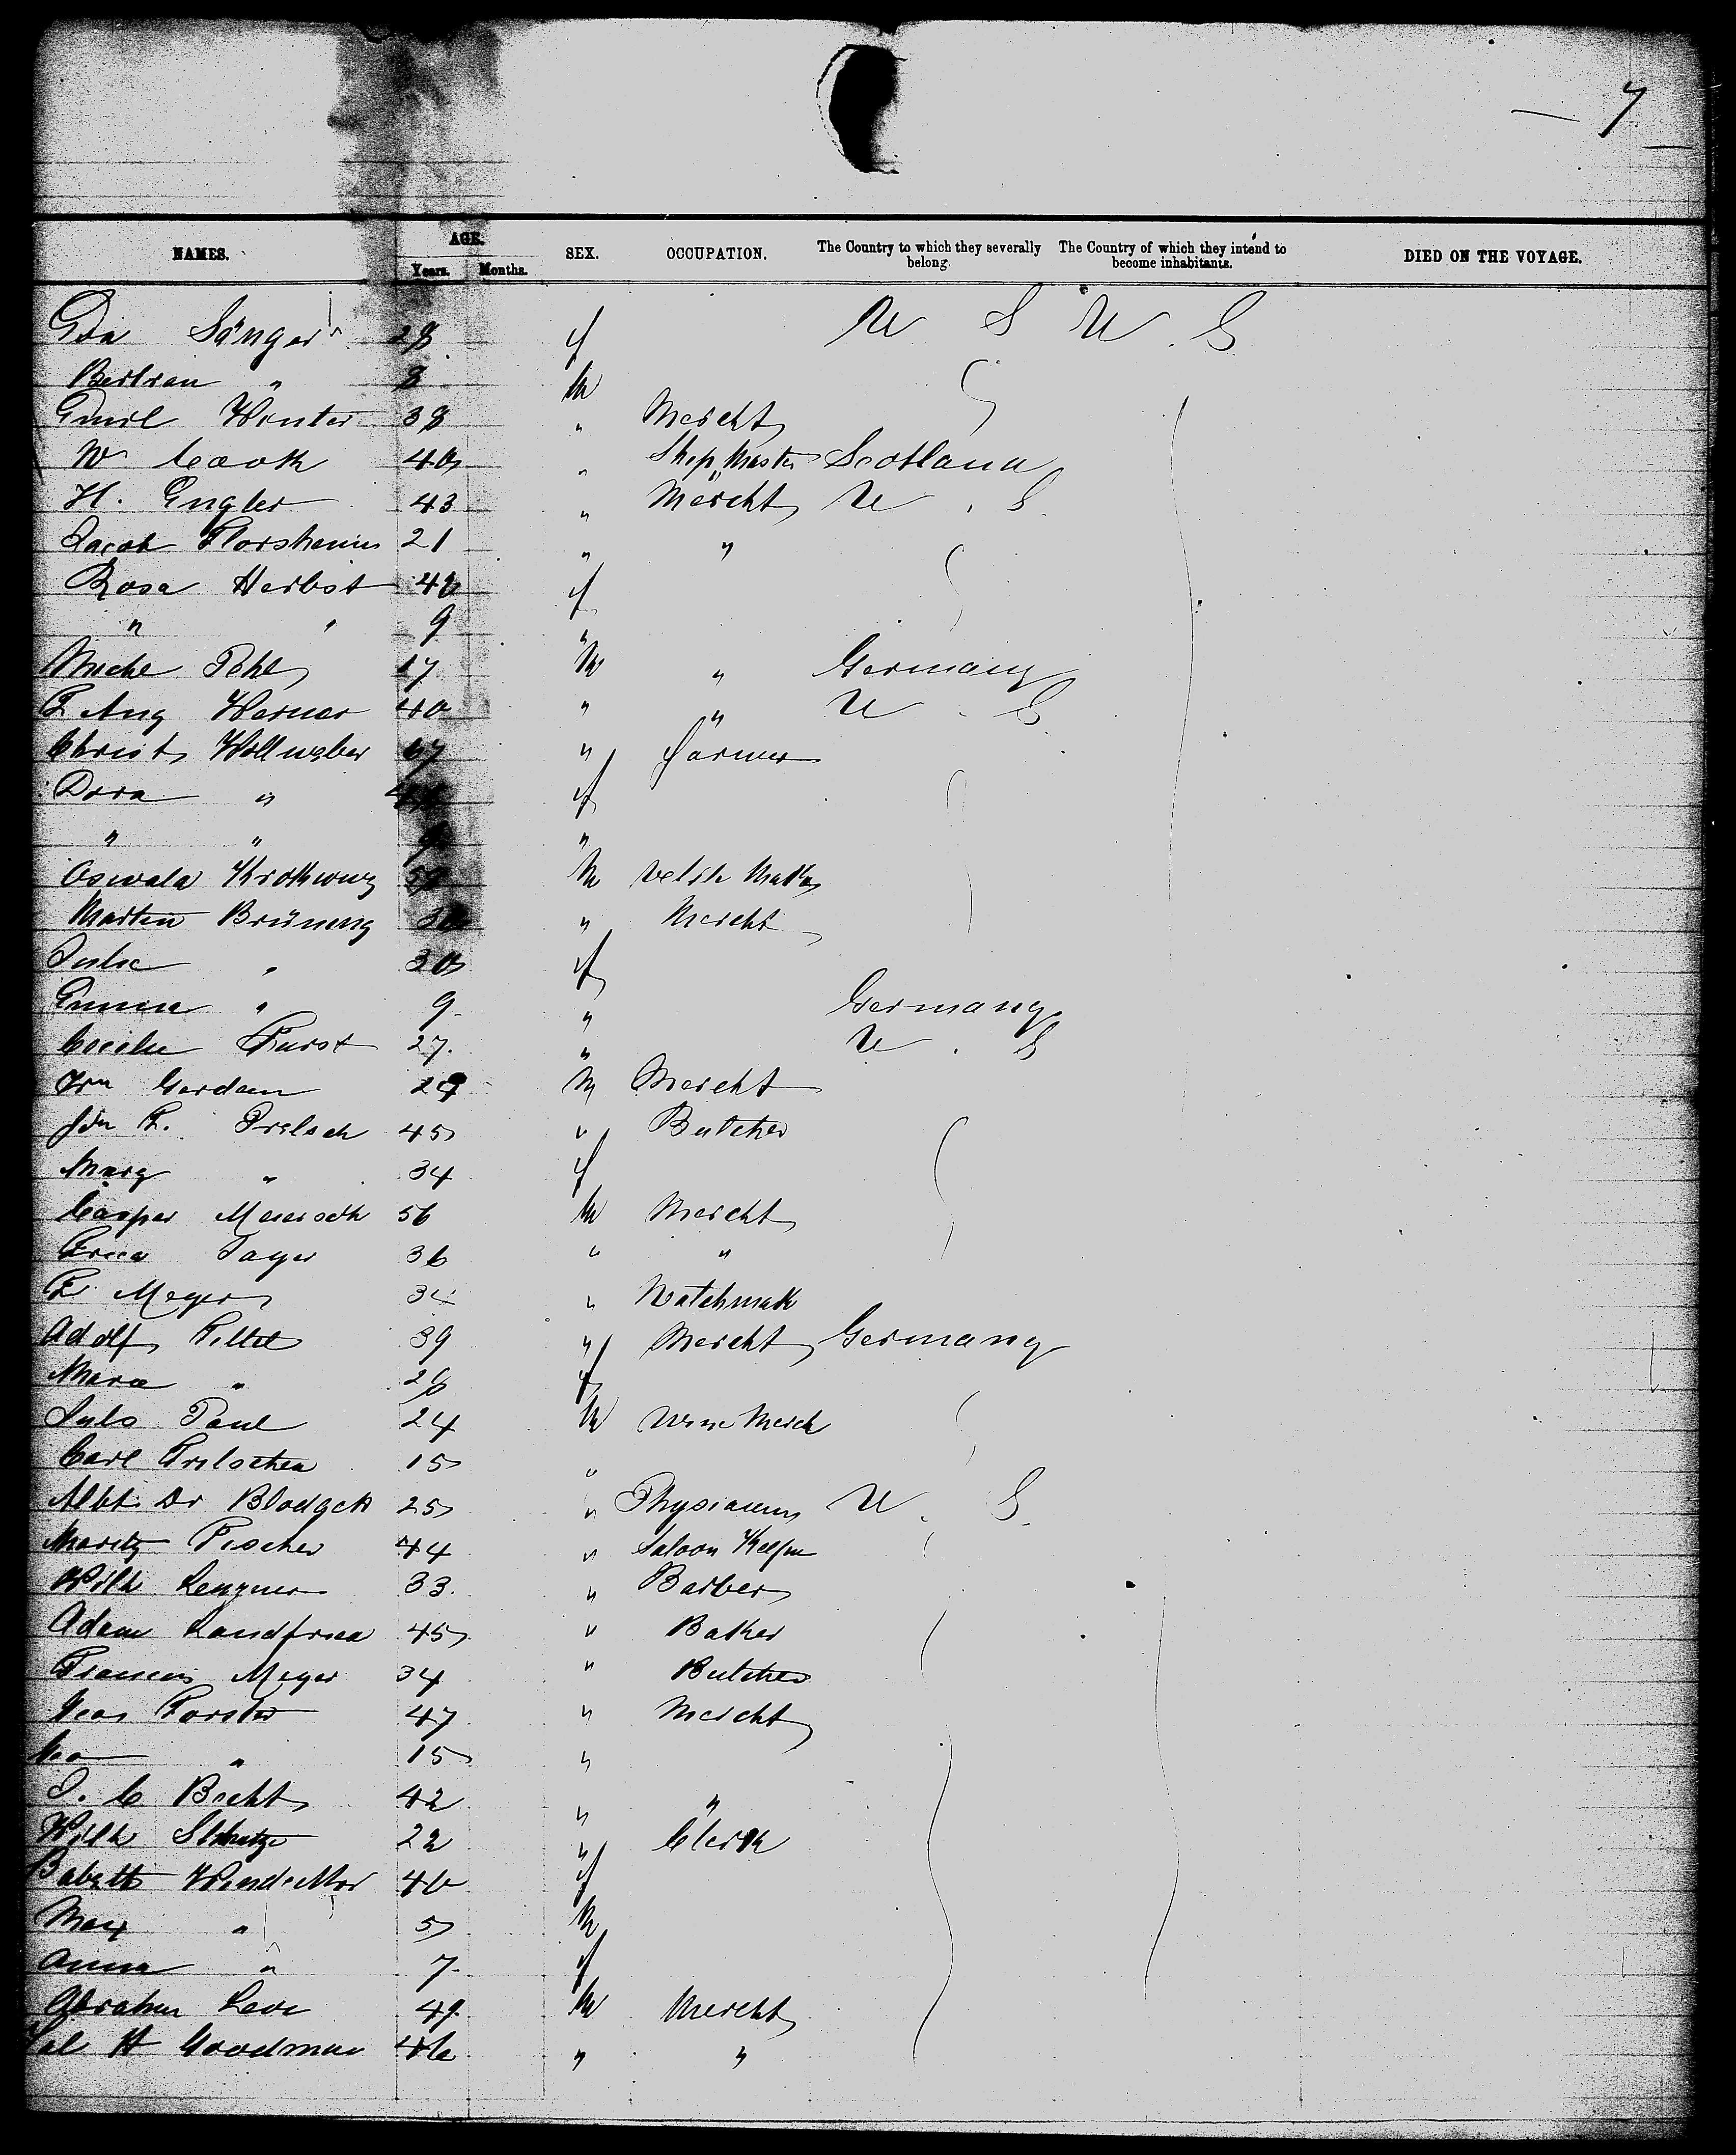 7
NAMES. AGE. Years. Months. SEX. OCCUPATION. The Country to which they severally belong. The Country of which they intend to become inhabitants. DIED ON THE VOYAGE.
Ida Sänger 28 f U S U. S
Bertran " 8 m
Emil Winter 38 " Mercht
W. Cook 40 " Ship Master Scotland
H. Engler 43 " Mercht U. S.
Jacob Florsheim 21 " "
Rosa Herbst f
" " 9 "
17 m " Germany
F Aug Werner 40 " " U. S
Christ Hollweber 67 " farmer
Dora " f
" " "
Oswald m
Martin Brüning " Mercht
Julie " 30 f
Emma " 9 " Germany
Cecilie Furst 27 " U. S
Wm Gerdam 29 m Mercht
Joh F. 45 " Butcher
Marg " 34 f
Casper 56 m Mercht
36 " "
F Meyer 34 " Watchmak
Adolf 39 " Mercht Germany
Maria " 28 f
Jula Paul 24 m Wine Merch
Carl 15 "
Albt. Dr Blodgett 25 " Physician U. S.
Moritz Fischer 44 " Saloon Keeper
Wilh 33 " Barber
Adam Landfried 45 " Baker
Francis Meyer 34 " Butcher
Geo Forster 47 " Mercht
" 15 "
J. C Becht 42 " "
Wilh Schutze 22 " Clerk
Babett f
Max " 5 m
Anna " 7 f
Abraham Levi 49 m Mercht
H Goodman 46 " "